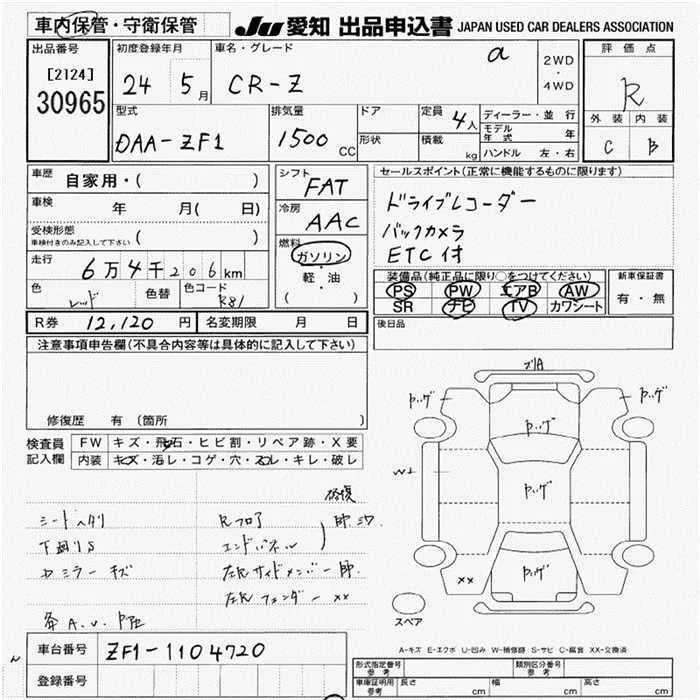 車内保管・守衛保管
JU 愛知 出品申込書 JAPAN USED CAR DEALERS ASSOCIATION
出品番号
[2124]
30965
初度登録年月
24 5月
車名・グレード
CR-Z
2WD
・
4WD
評価点
R
外装 内装
C B
型式
DAA-ZF1
排気量
1500 CC
ドア
形状
定員 4人
積載 kg
ディーラー・並行
モデル年式 年
ハンドル 左・右
車歴 自家用・( )
車検 年 月( 日)
受検形態
車検付きのみ記入して下さい ( )
走行 6万4千206km
色 レッド 色替 色コード R81
シフト
FAT
冷房
AAC
燃料
ガソリン
・
軽・油
( )
セールスポイント(正常に機能するものに限ります)
ドライブレコーダー
バックカメラ
ETC付
装備品(純正品に限り○をつけてください)
PS PW エアB AW
SR ナビ TV カワシート
新車保証書
有・無
R券 12,120 円 名変期限 月 日
後日品
注意事項申告欄(不具合内容等は具体的に記入して下さい)
修復歴 有 (箇所 )
検査員記入欄
FW キズ・飛石・ヒビ割・リペア跡・X要
内装 キズ・汚レ・コゲ・穴・スレ・キレ・破レ
修復
シートヘタリ
Rフロア
下廻りS
エンドパネル
ドミラーキズ
左右サイドメンバー
左右フェンダー XX
W1
XX
スペア
A-キズ E-エクボ U-凹み W-補修跡 S-サビ C-腐食 XX-交換済
車台番号 ZF1-1104720
登録番号
形式指定番号
参考
類別区分番号
参考
車庫証明用
参考
長さ cm 幅 cm 高さ cm